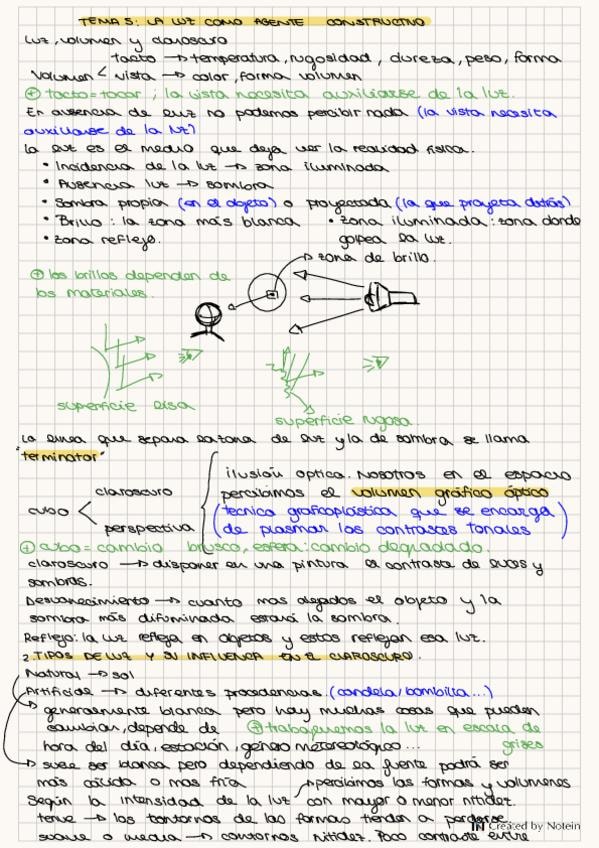 TEMA 5: LA LUZ COMO AGENTE CONSTRUCTIVO
Luz, volumen y claroscuro
tacto → temperatura, rugosidad, dureza, peso, forma
Volumen < vista → color, forma volumen
⊕ tacto = tocar ; la vista necesita auxiliarse de la luz.
En ausencia de luz no podemos percibir nada (la vista necesita
auxiliarse de la luz)
La luz es el medio que deja ver la realidad física.
• Incidencia de la luz → zona iluminada
• Ausencia luz → sombra
• Sombra propia (en el objeto) o proyectada (la que proyecta detrás)
• Brillo : la zona más blanca • zona iluminada: zona donde
• zona reflejo. golpea la luz.
→ zona de brillo.
⊕ los brillos dependen de
los materiales.
superficie lisa
superficie rugosa
La línea que separa la zona de luz y la de sombra se llama
"terminator"
ilusión optica. Nosotros en el espacio
claroscuro percibimos el volumen gráfico óptico
cubo < (tecnica graficoplástica que se encarga
perspectiva de plasmar los contrastes tonales)
⊕ cubo = cambio brusco, esfera: cambio degradado.
claroscuro → disponer en una pintura el contraste de luces y
sombras.
Desvanecimiento → cuanto mas alejados el objeto y la
sombra más difuminada estará la sombra.
Reflejo: la luz refleja en objetos y estos reflejan esa luz.
2. TIPOS DE LUZ Y SU INFLUENCIA EN EL CLAROSCURO.
Natural → sol
Artificial → diferentes procedencias (candela/bombilla...)
generalmente blanca pero hay muchas cosas que pueden
cambiar, depende de ⊕ trabajaremos la luz en escala de
hora del día, estación, género metereológico... grises
suele ser blanca pero dependiendo de la fuente podrá ser
más cálida o mas fría → percibimos las formas y volúmenes
Según la intensidad de la luz con mayor o menor nitidez.
tenue → los contornos de las formas tienden a perderse
suave o media → contornos nitidez. Poco contraste entre
Created by Notein